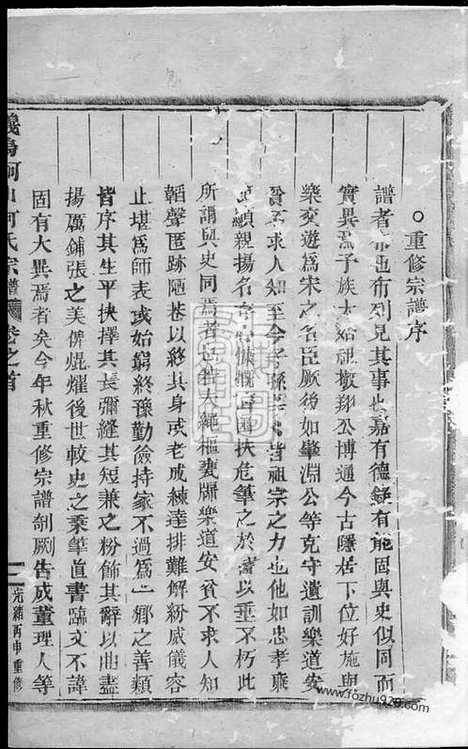 重修宗譜序
譜者布也布列見其事也嘉有德錄有能固與史似同而
實異焉予族太始祖敬翔公博通今古隱居下位好施與
樂交遊爲宋之名臣厥後如肇淵公等克守遺訓樂道安
不求人知至今子孫皆祖宗之力也他如忠孝廉
顯親揚名慷慨扶危筆之於諸以垂不朽此
所謂與史同焉者也特夫繩樞甕牖樂道安貧不求人知
韜聲匿跡陋巷以終其身或老成練達排難解紛威儀容
止堪爲師表或始窮終豫勤儉持家不過爲一鄉之善類
皆序其生平抉擇其長彌縫其短兼之粉飾其辭以曲盡
揚厲鋪張之美俾焜燿後世較史之秉筆直書臨文不諱
固有大異焉者矣今年秋重修宗譜剞劂告成董理人等
義烏河山何氏宗譜 卷之首
一 光緒丙申重修
www.fozhu920.com